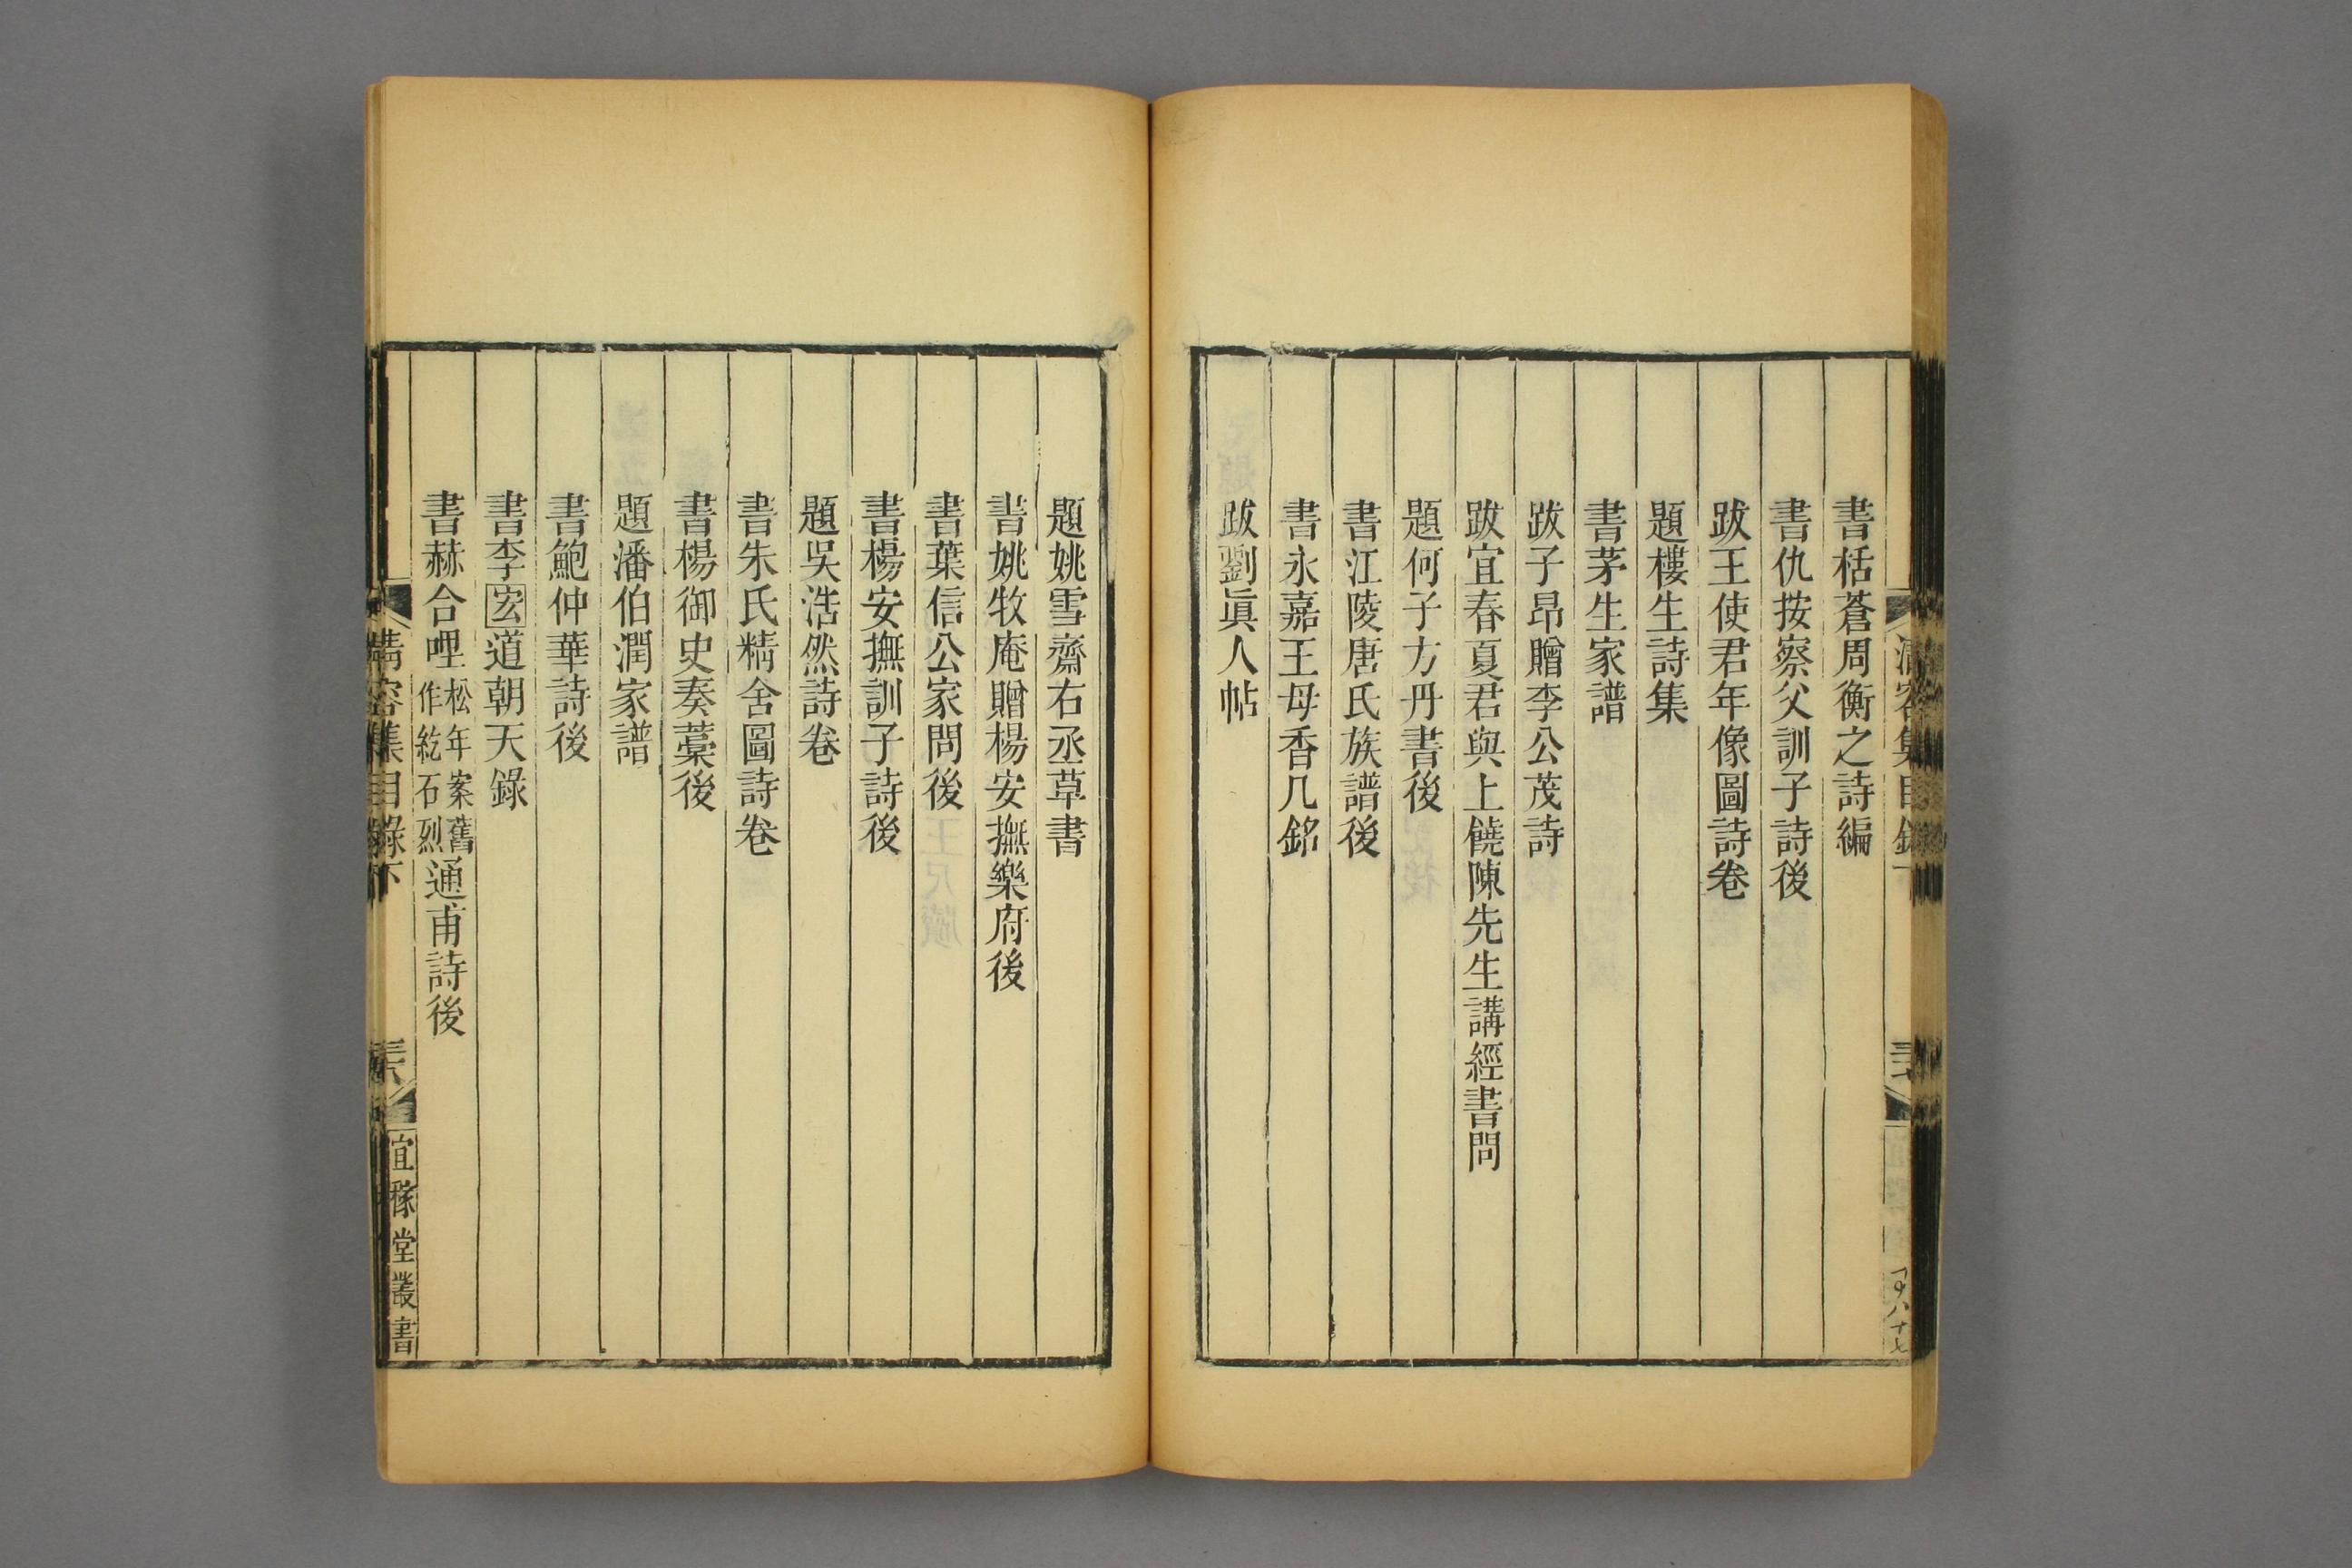 書栝蒼周衡之詩編
書仇按察父訓子詩後
跋王使君年像圖詩卷
題樓生詩集
書茅生家譜
跋子昂贈李公茂詩
跋宜春夏君與上饒陳先生講經書問
題何子方丹書後
書江陵唐氏族譜後
書永嘉王母香几銘
跋劉眞人帖
題姚雪齋右丞草書
書姚牧庵贈楊安撫樂府後
書葉信公家問後
書楊安撫訓子詩後
題吳浩然詩卷
書朱氏精舍圖詩卷
書楊御史奏藁後
題潘伯潤家譜
書鮑仲華詩後
書李宏道朝天錄
書赫合哩松年案舊作紇石烈通甫詩後
清容集目錄下
宜稼堂叢書